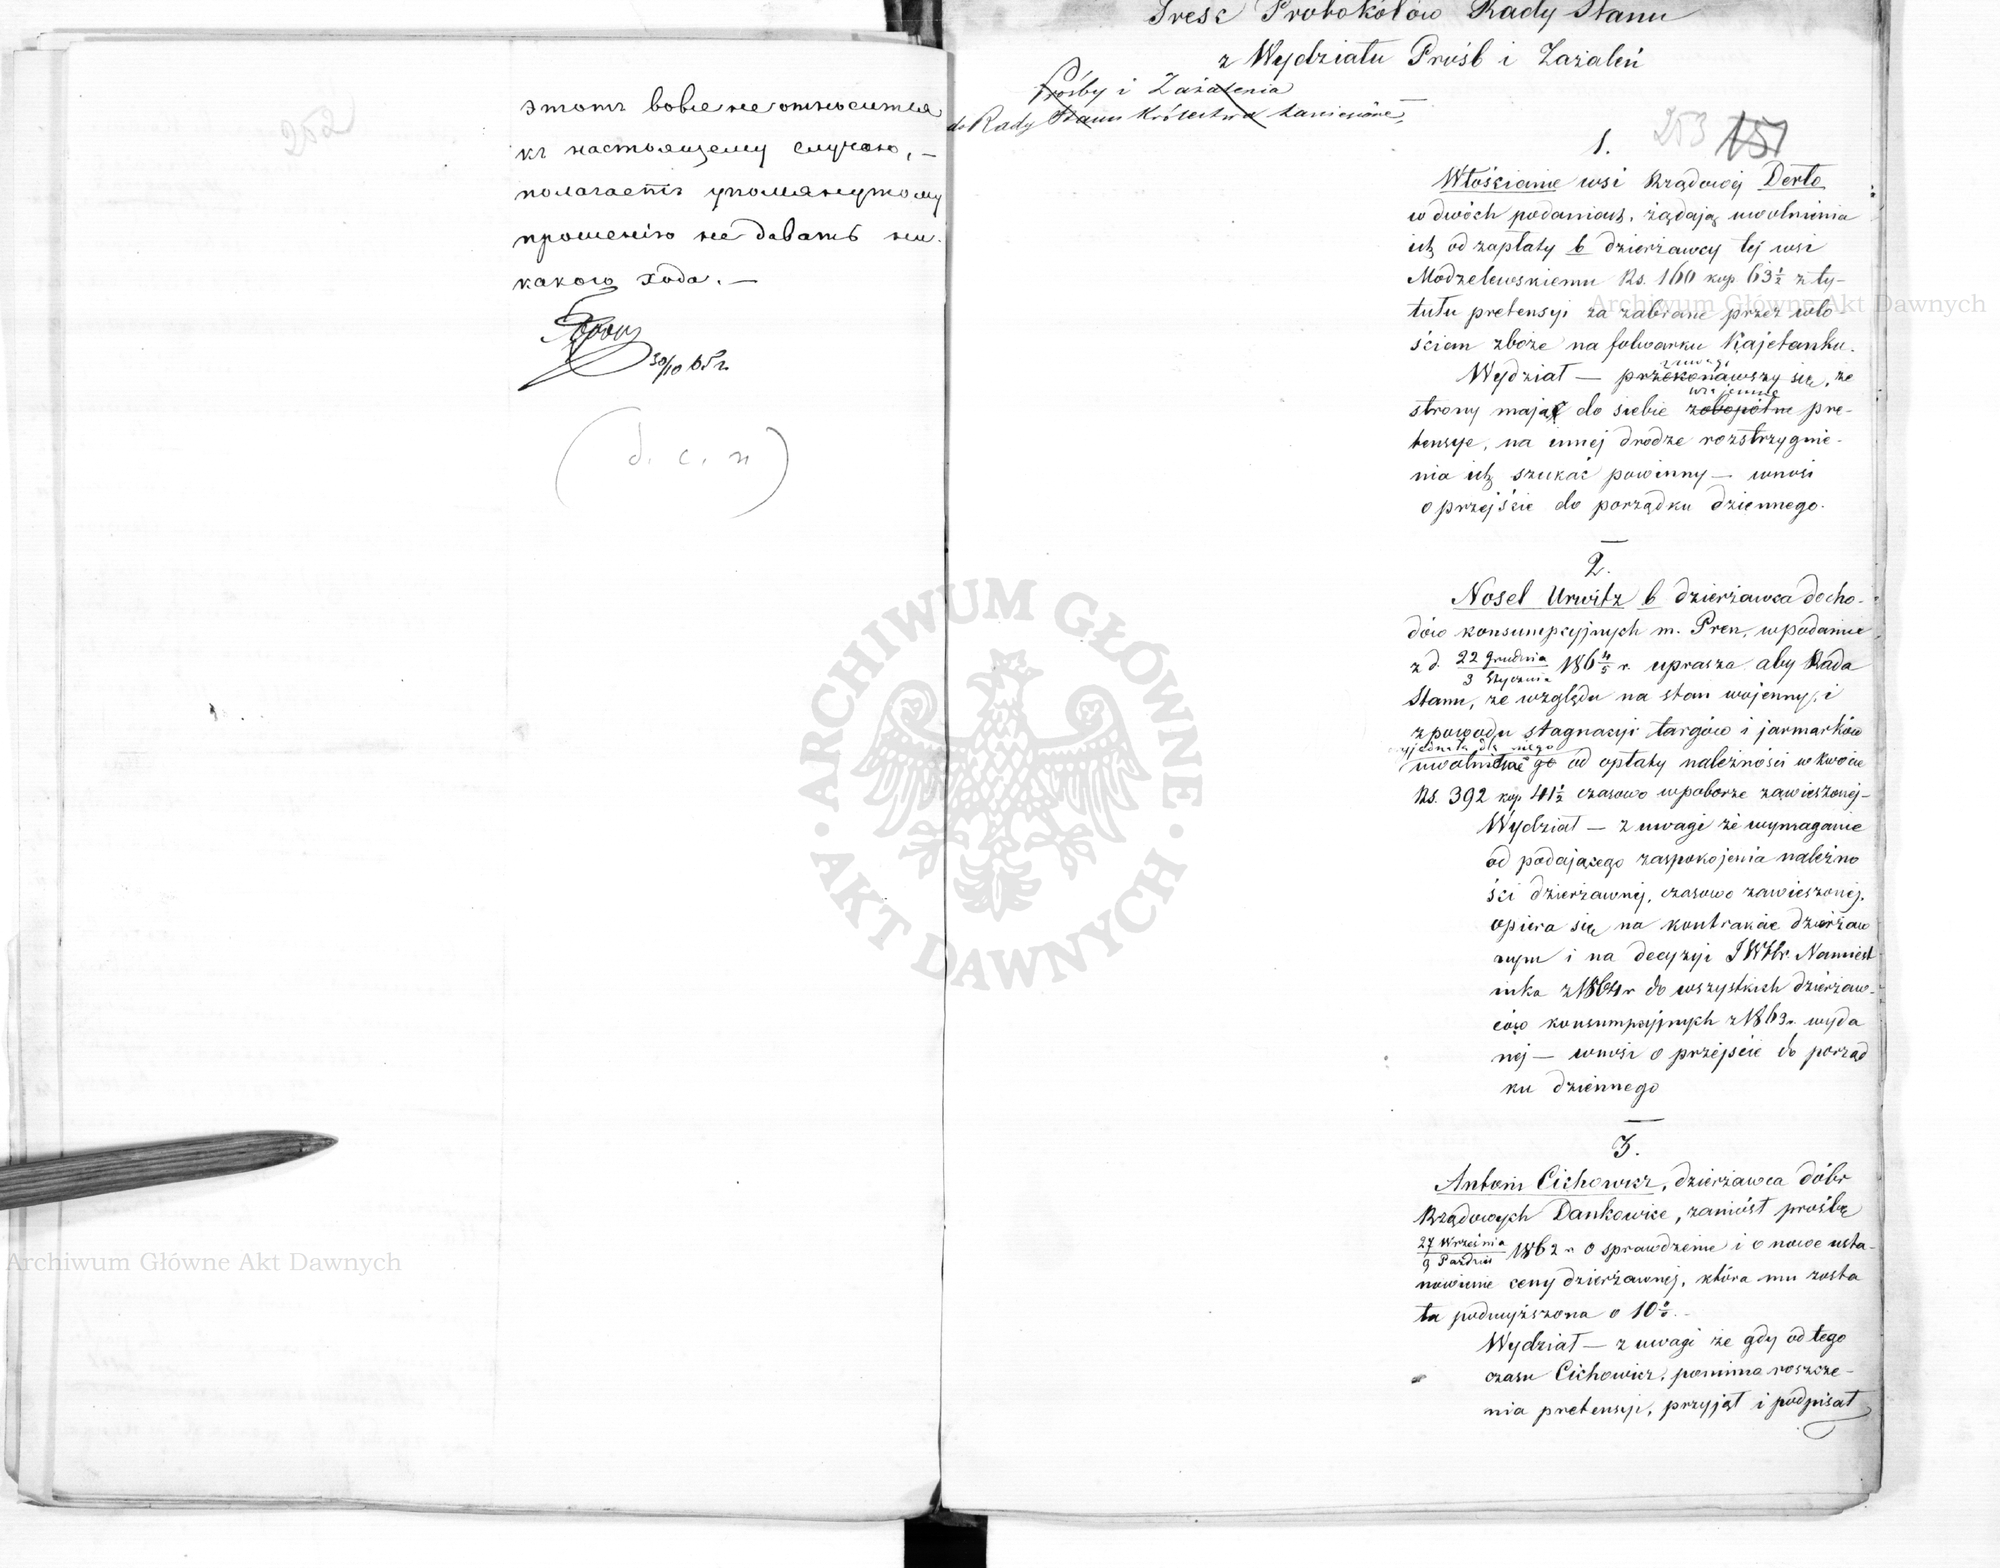 этотъ вовсе не относится
къ настоящему случаю, —
полагаетъ упомянутому
прошенію не давать ни-
какого хода. —
30/10 65 г.
(d. c. n)
252
Treść Protokółów Rady Stanu
z Wydziału Próśb i Zażaleń
Prośby i Zażalenia
do Rady Stanu Królestwa zaniesione
253 151
1.
Włościanie wsi Rządowéj Derło
w dwóch podaniach, żądają uwolnienia
ich od zapłaty b dzierżawcy tej wsi
Modzelewskiemu Rs. 160 kop 63½ z ty-
tułu pretensyi za zabrane przez wło-
ścian zboże na folwarku Kajetanku.
z uwagi
Wydział — przekonawszy się, że
wzajemne
strony mają do siebie zobopólne pre-
tensye, na innej drodze rozstrzygnie-
nia ich szukać powinny — wnosi
o przejście do porządku dziennego.
2.
Nosel Urwitz b dzierżawca docho-
dów konsumpcyjnych m. Pren, w podaniu
z d. 22 Grudnia / 3 Stycznia 186 4/5 r. uprasza aby Rada
Stanu, ze względu na stan wojenny, i
z powodu stagnacyi targów i jarmarków
wyjednała dla niego
uwolnienie go od opłaty należności w kwocie
Rs. 392 kop 41½ czasowo w poborze zawieszonej —
Wydział — z uwagi że wymaganie
od podającego zaspokojenia należno
ści dzierżawnéj, czasowo zawieszonej,
opiera się na kontrakcie dzierżaw
nym i na decyzyi JWHr. Namiest
nika z 1864 r do wszystkich dzierżaw-
ców konsumpcyjnych z 1863 r. wyda
nej — wnosi o przejście do porząd
ku dziennego
3.
Antoni Cichowicz, dzierżawca dóbr
Rządowych Dankowice, zaniósł prośbę
27 Września / 9 Paździer 1862 r o sprawdzenie i o nowe usta-
nowienie ceny dzierżawnéj, która mu zosta
ła podwyższona o 10%. —
Wydział — z uwagi że gdy od tego
czasu Cichowicz, pomimo roszcze-
nia pretensyi, przyjął i podpisał
Archiwum Główne Akt Dawnych
ARCHIWUM GŁÓWNE · AKT DAWNYCH ·
Archiwum Główne Akt Dawnych